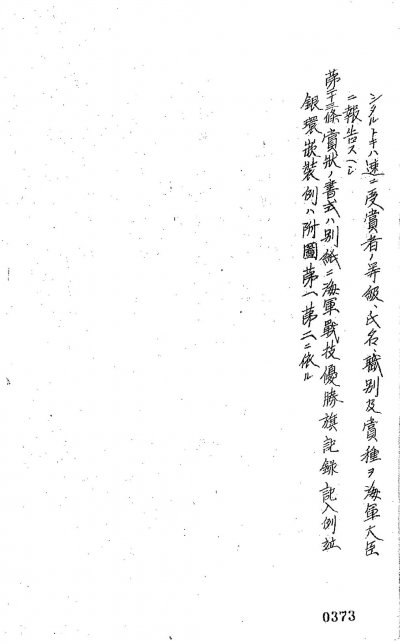 シタルトキハ速ニ受賞者ノ等級、氏名、職別及賞種ヲ海軍大臣
ニ報告スヘシ
第十三條賞狀ノ書式ハ別紙ニ海軍戰技優勝旗記錄記入例竝
銀環嵌裝例ハ附圖第一、第二ニ依ル
0373